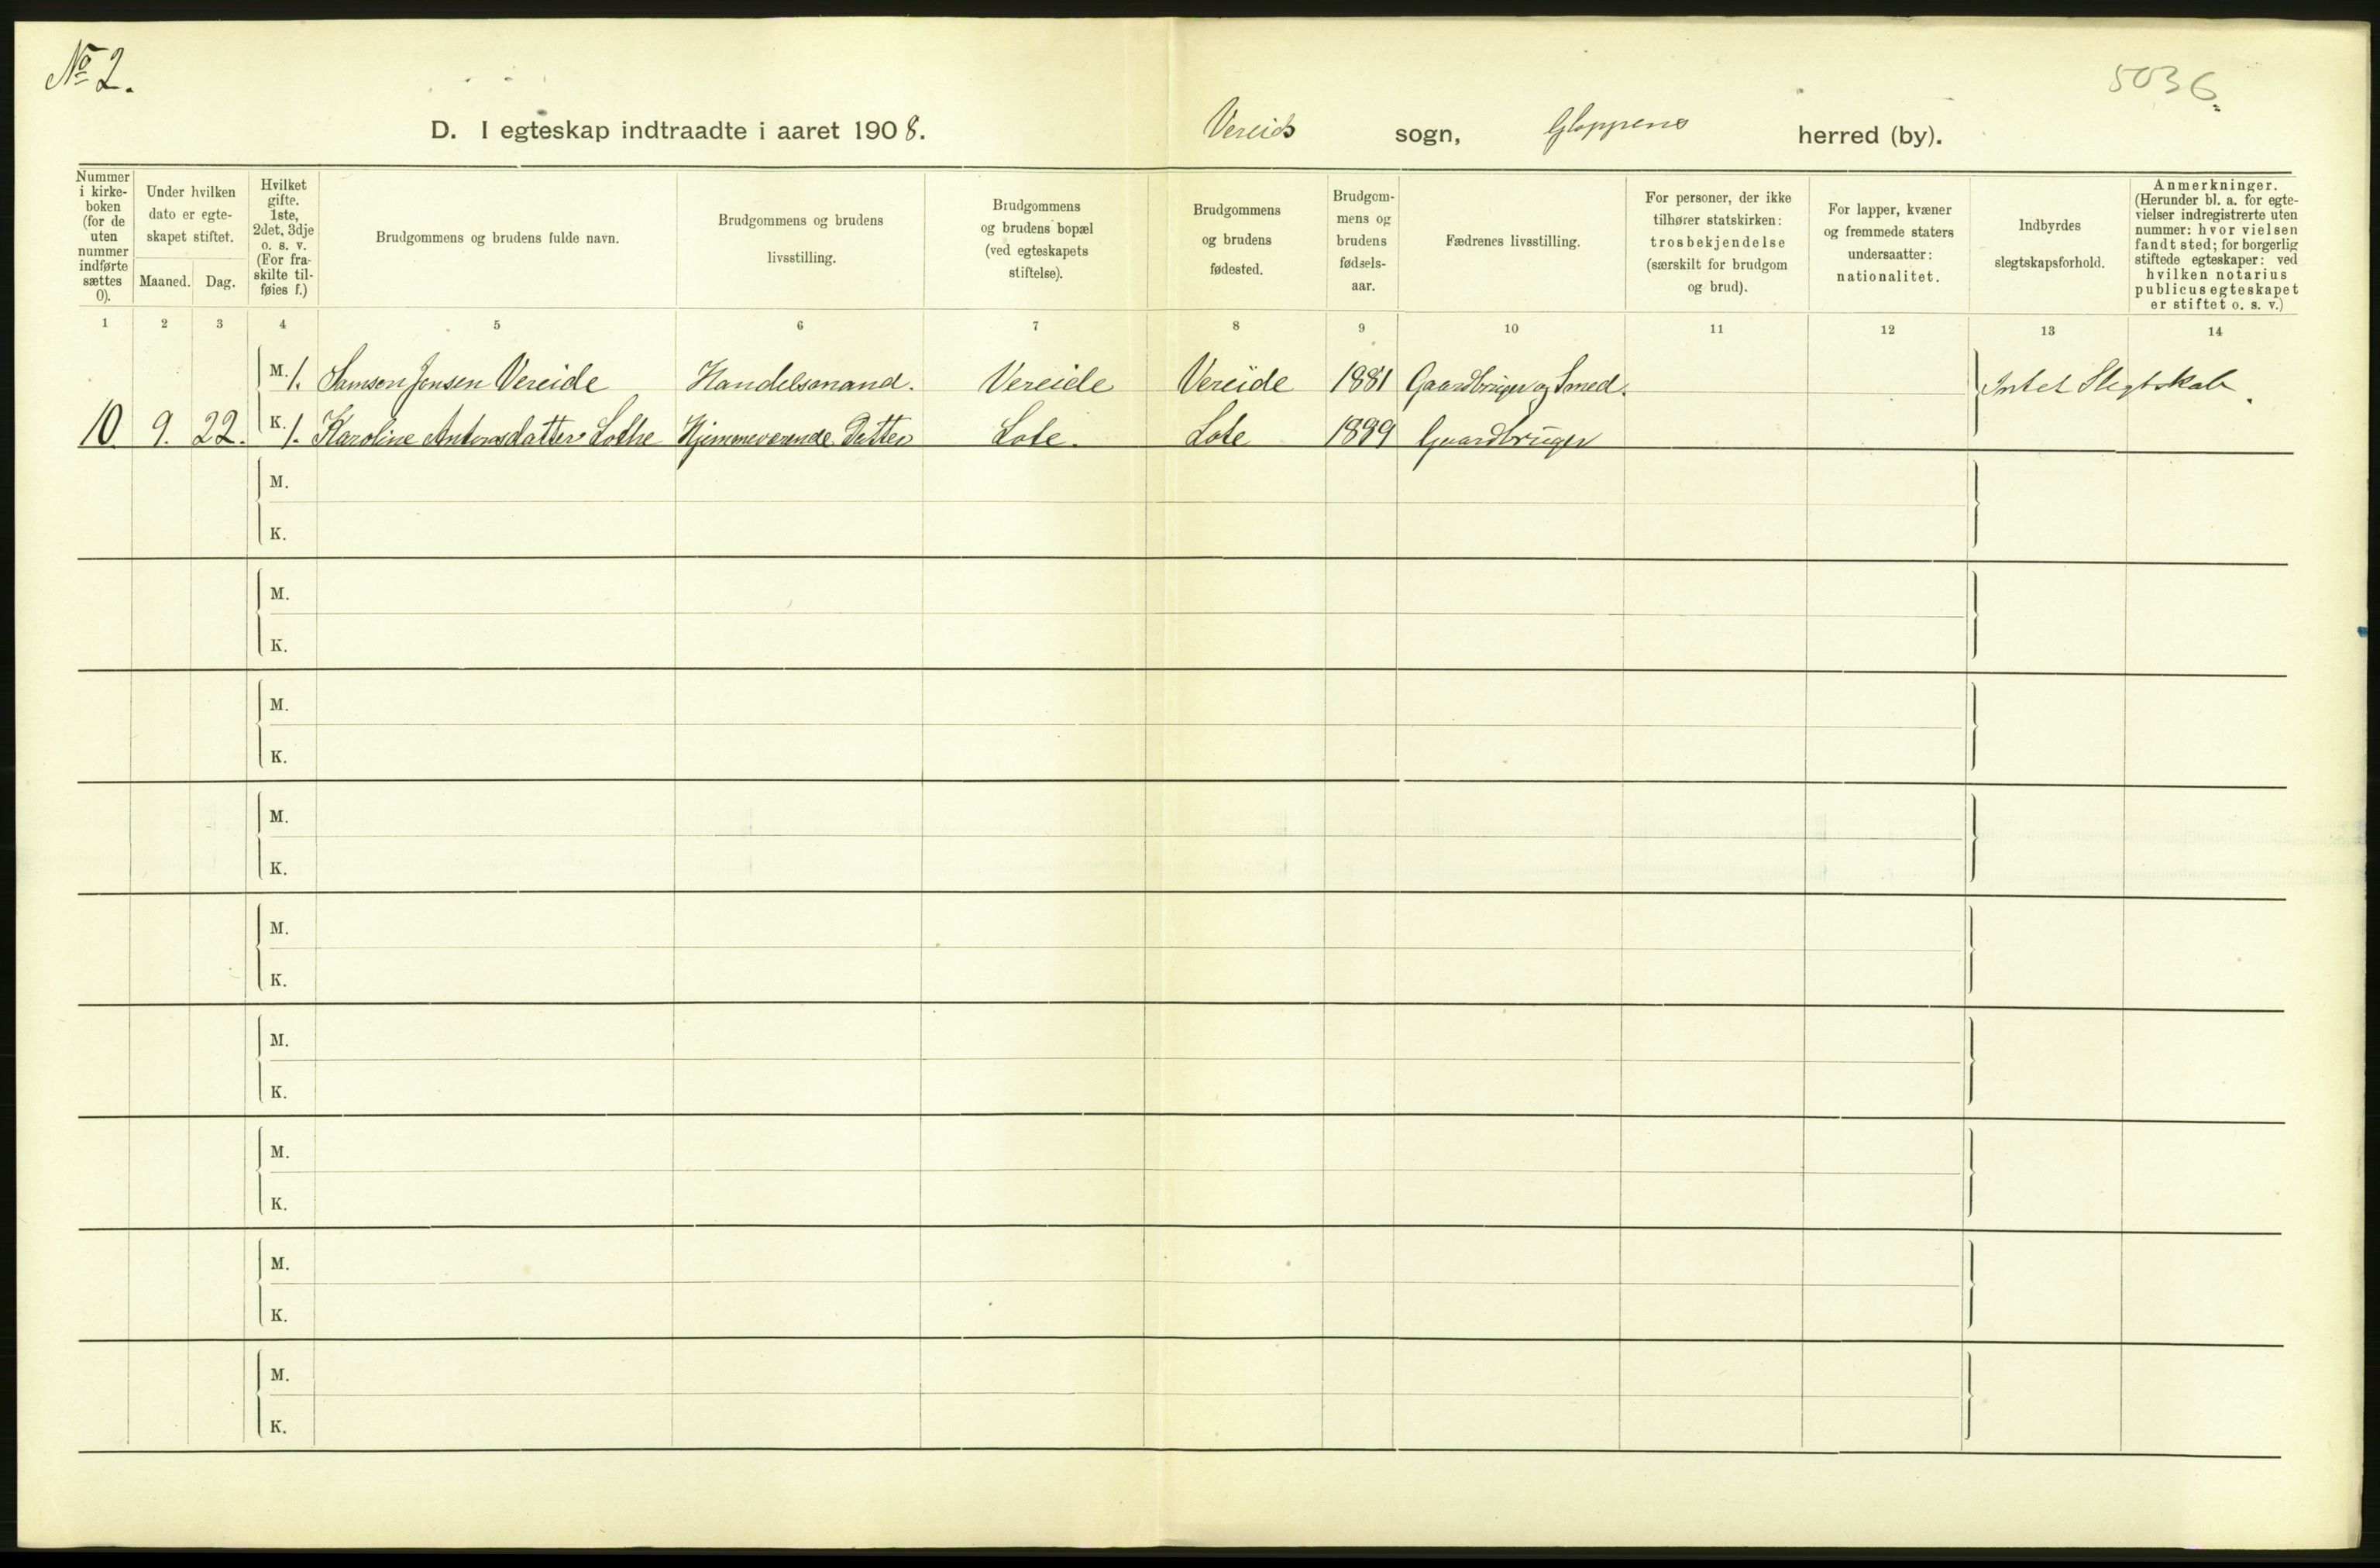 No 2.
5036
D. I egteskap indtraadte i aaret 1908.
Vereids sogn, Gloppens herred (by).
Nummer i kirke-boken (for de uten nummer indførte sættes 0).
Under hvilken dato er egte-skapet stiftet.
Maaned. Dag.
Hvilket gifte. 1ste, 2det, 3dje o. s. v. (For fra-skilte til-føies f.)
Brudgommens og brudens fulde navn.
Brudgommens og brudens livsstilling.
Brudgommens og brudens bopæl (ved egteskapets stiftelse).
Brudgommens og brudens fødested.
Brudgom-mens og brudens fødsels-aar.
Fædrenes livsstilling.
For personer, der ikke tilhører statskirken: trosbekjendelse (særskilt for brudgom og brud).
For lapper, kvæner og fremmede staters undersaatter: nationalitet.
Indbyrdes slegtskapsforhold.
Anmerkninger. (Herunder bl. a. for egte-vielser indregistrerte uten nummer: hvor vielsen fandt sted; for borgerlig stiftede egteskaper: ved hvilken notarius publicus egteskapet er stiftet o. s. v.)
1 2 3 4 5 6 7 8 9 10 11 12 13 14
M. 1. Samson Jensen Vereide Handelsmand. Vereide Vereide 1881 Gaardbruger og Smed. Intet Slegtskab.
10. 9. 22. K. 1. Karoline Antonsdatter Lothe Hjemmeværende Datter Lote. Lote 1889 Gaardbruger
M.
K.
M.
K.
M.
K.
M.
K.
M.
K.
M.
K.
M.
K.
M.
K.
M.
K.